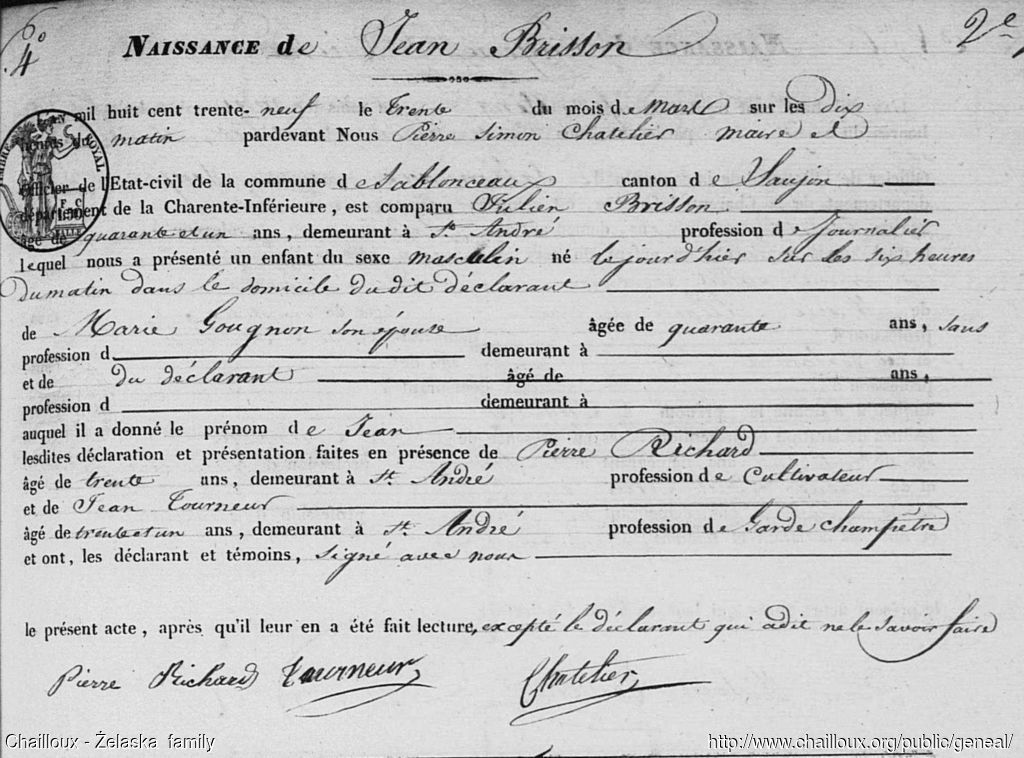 N.o 4
2e
NAISSANCE de Jean Brisson
mil huit cent trente-neuf le trente du mois de Mars sur les dix
heures du matin pardevant Nous Pierre Simon Chatelier maire et
officier de l'Etat-civil de la commune de Sablonceaux canton de Saujon
département de la Charente-Inférieure, est comparu Julien Brisson
âgé de quarante et un ans, demeurant à St. André profession de Journalier
lequel nous a présenté un enfant du sexe masculin né le jour d'hier sur les six heures
du matin dans le domicile du dit déclarant
de Marie Gougnon son épouse âgée de quarante ans, sans
profession d demeurant à
et de du déclarant âgé de ans,
profession d demeurant à
auquel il a donné le prénom de Jean
lesdites déclaration et présentation faites en présence de Pierre Richard
âgé de trente ans, demeurant à St. André profession de Cultivateur
et de Jean Tourneur
âgé de trente et un ans, demeurant à St. André profession de Garde champêtre
et ont, les déclarant et témoins, signé avec nous
le présent acte, après qu'il leur en a été fait lecture, excepté le déclarant qui a dit ne le savoir faire
Pierre Richard Tourneur Chatelier
Chailloux - Żelaska family http://www.chailloux.org/public/geneal/